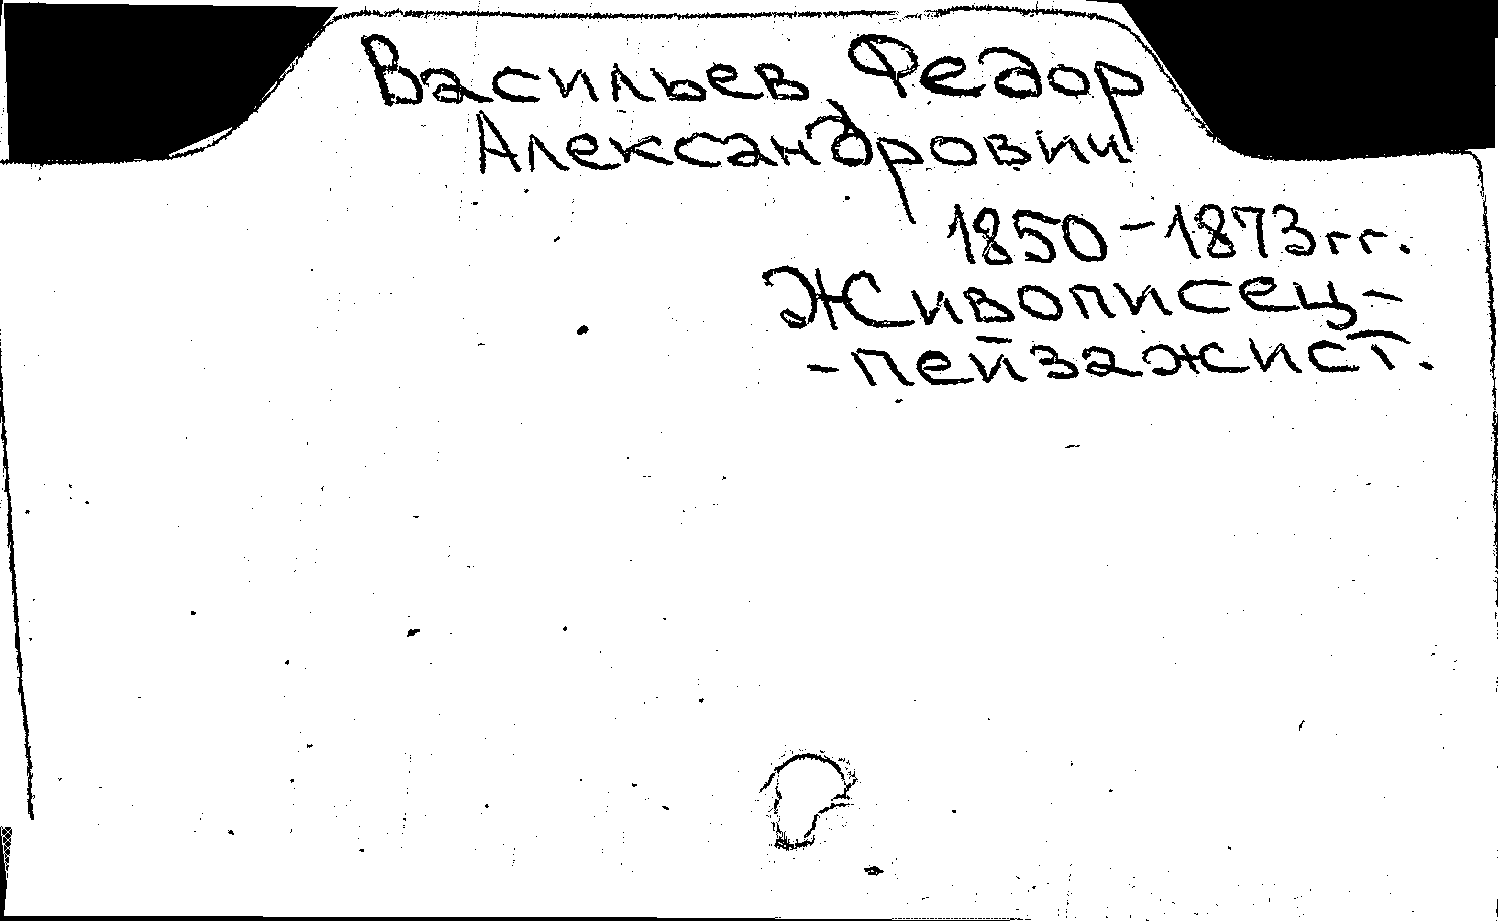 Васильев Федор
Александрович
1850-1873гг.
Живописец-
-пейзажист.